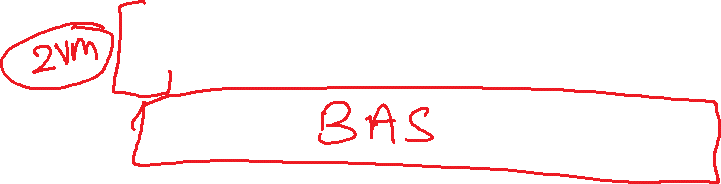 2VM
BAS